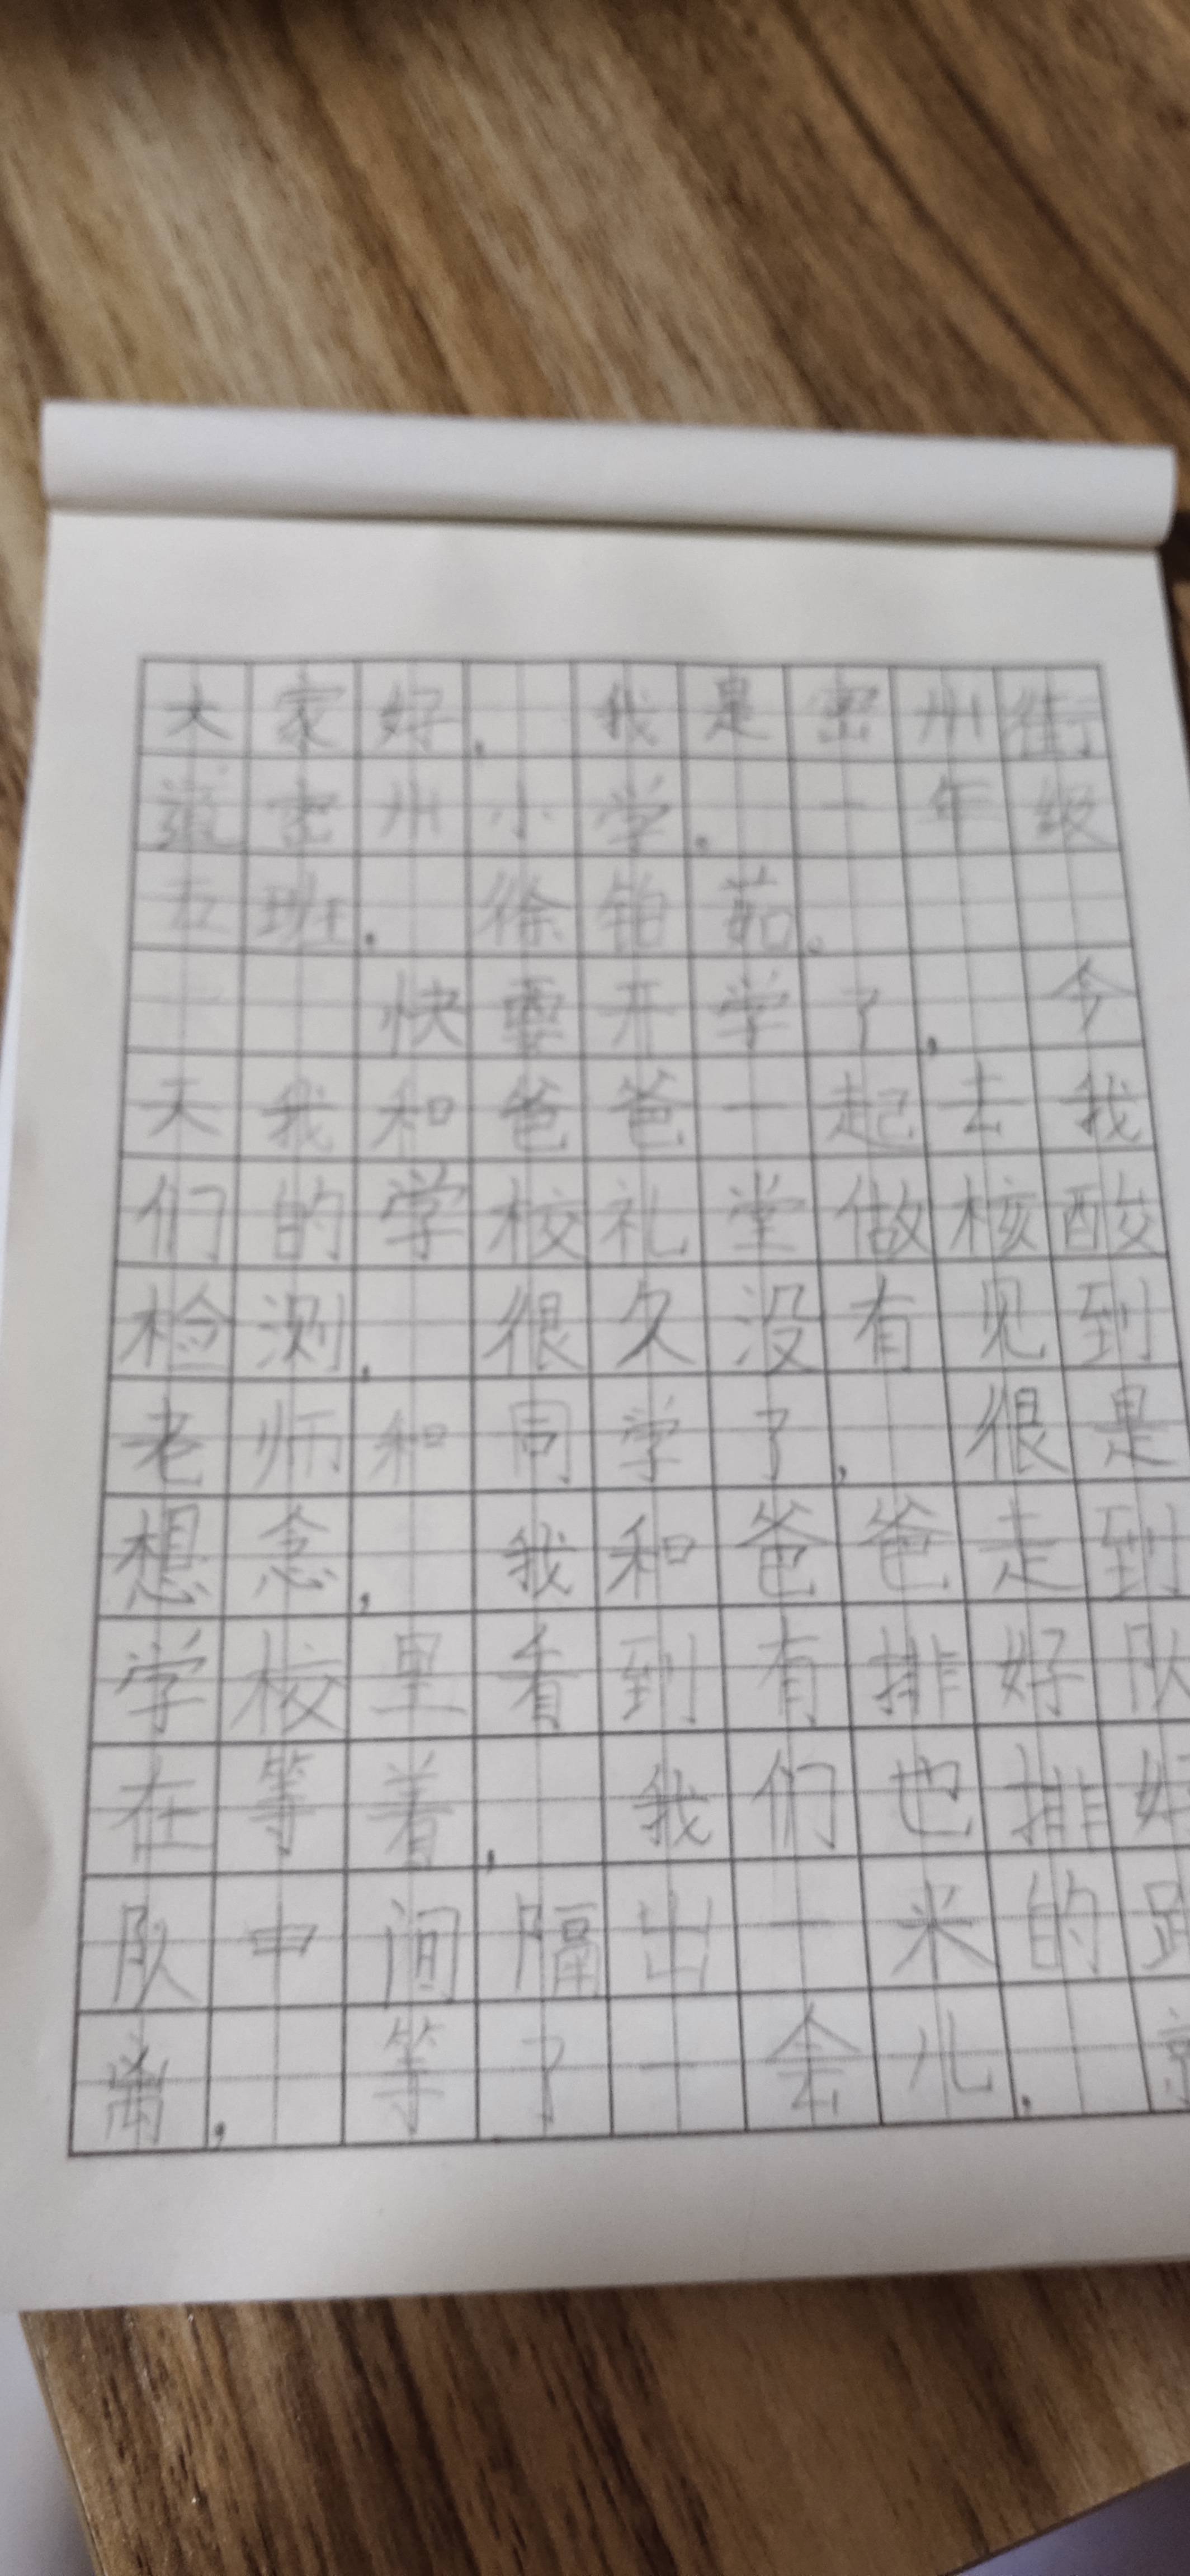 大家好，我是密州街
道密州小学。一年级
五班．徐铂茹。
快要开学了，今
天我和爸爸一起去我
们的学校礼堂做核酸
检测．很久没有见到
老师和同学了，很是
想念，我和爸爸走到
学校里看到有排好队
在等着，我们也排好
队中间隔出一米的距
离，等了一会儿．